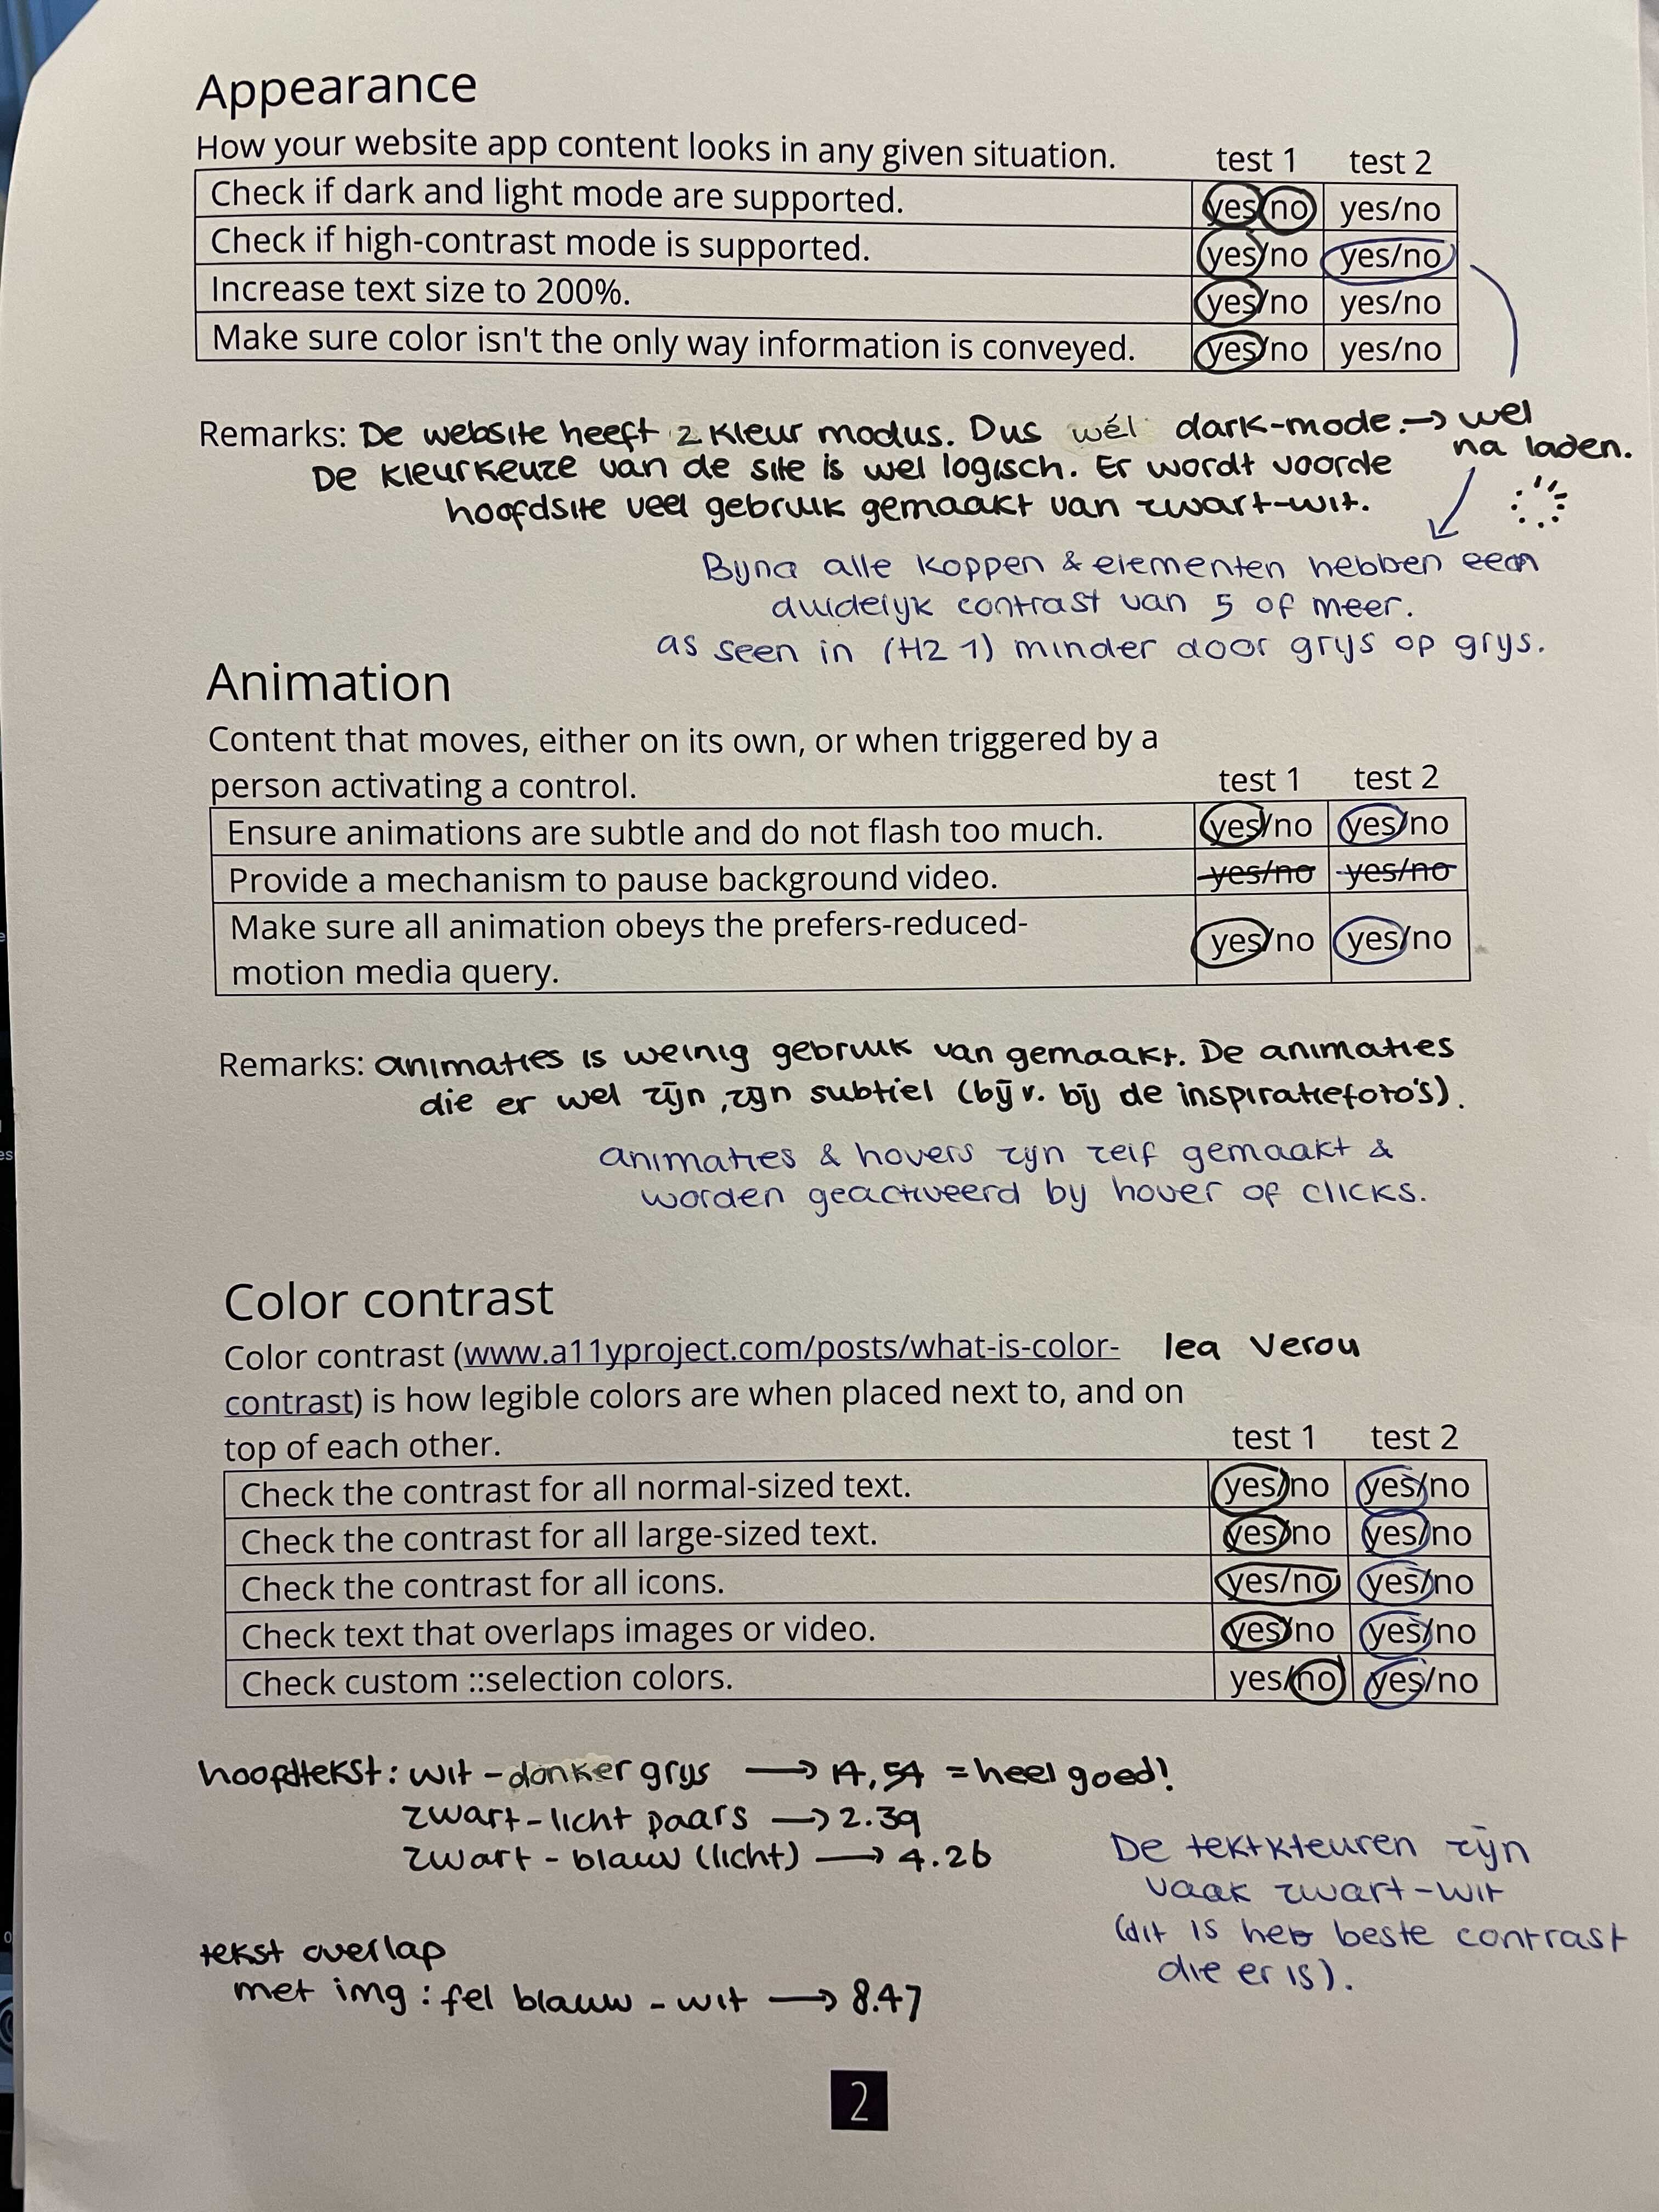 Appearance
How your website app content looks in any given situation. test 1 test 2
Check if dark and light mode are supported. yes/no yes/no
Check if high-contrast mode is supported. yes/no yes/no
Increase text size to 200%. yes/no yes/no
Make sure color isn't the only way information is conveyed. yes/no yes/no
Remarks: De website heeft 2 kleur modus. Dus wél dark-mode. → wel
na laden.
De kleurkeuze van de site is wel logisch. Er wordt voorde
hoofdsite veel gebruik gemaakt van zwart-wit.
Bijna alle koppen & elementen hebben een
duidelijk contrast van 5 of meer.
as seen in (H2 1) minder door grijs op grijs.
Animation
Content that moves, either on its own, or when triggered by a
person activating a control. test 1 test 2
Ensure animations are subtle and do not flash too much. yes/no yes/no
Provide a mechanism to pause background video. yes/no yes/no
Make sure all animation obeys the prefers-reduced-
motion media query. yes/no yes/no
Remarks: animaties is weinig gebruik van gemaakt. De animaties
die er wel zijn, zijn subtiel (bijv. bij de inspiratiefoto's).
animaties & hovers zijn zelf gemaakt &
worden geactiveerd bij hover of clicks.
Color contrast
Color contrast (www.a11yproject.com/posts/what-is-color- lea Verou
contrast) is how legible colors are when placed next to, and on
top of each other. test 1 test 2
Check the contrast for all normal-sized text. yes/no yes/no
Check the contrast for all large-sized text. yes/no yes/no
Check the contrast for all icons. yes/no yes/no
Check text that overlaps images or video. yes/no yes/no
Check custom ::selection colors. yes/no yes/no
hoofdtekst: wit - donker grijs → 14,54 = heel goed!
zwart - licht paars → 2.39
zwart - blauw (licht) → 4.26
De tektkleuren zijn
vaak zwart-wit
(dit is het beste contrast
die er is).
tekst overlap
met img: fel blauw - wit → 8.47
2